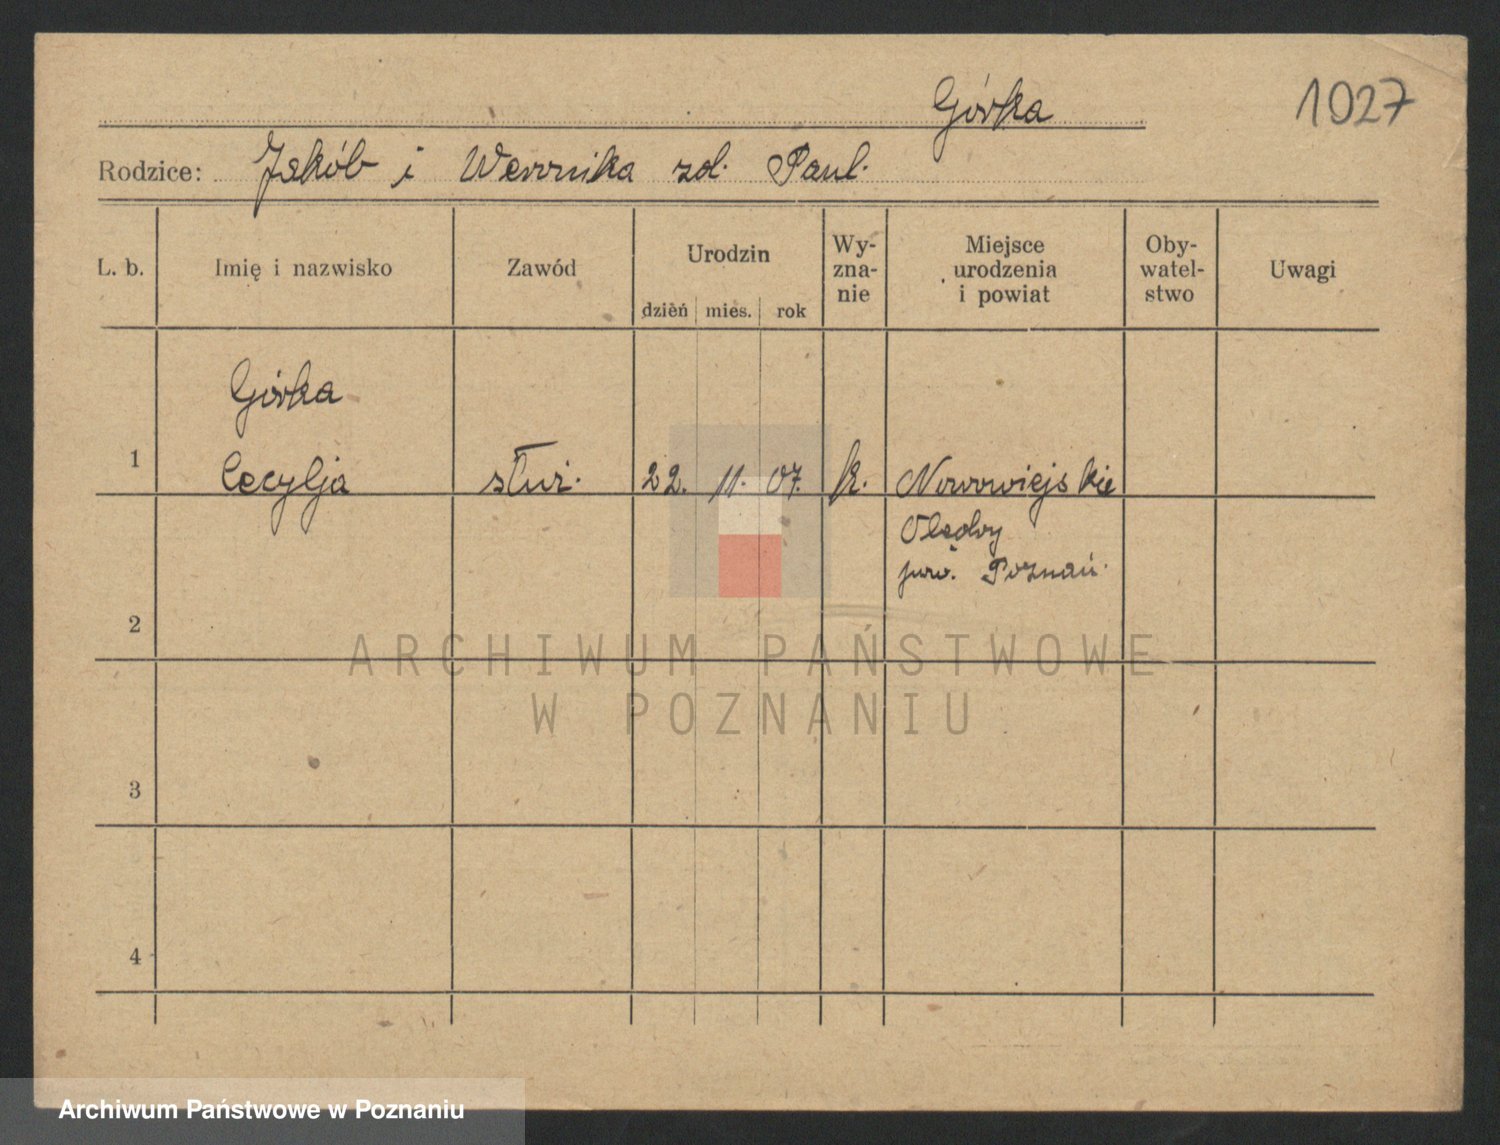 Górka
1027
Rodzice: Jakób i Weronika zd. Paul.
L. b.
Imię i nazwisko
Zawód
Urodzin
dzień mies. rok
Wy-
zna-
nie
Miejsce
urodzenia
i powiat
Oby-
watel-
stwo
Uwagi
Górka
1 Cecylja służ. 22. 11. 07. k. Nowowiejskie
Olędry
pow. Poznań.
2
ARCHIWUM PAŃSTWOWE
W POZNANIU
3
4
Archiwum Państwowe w Poznaniu